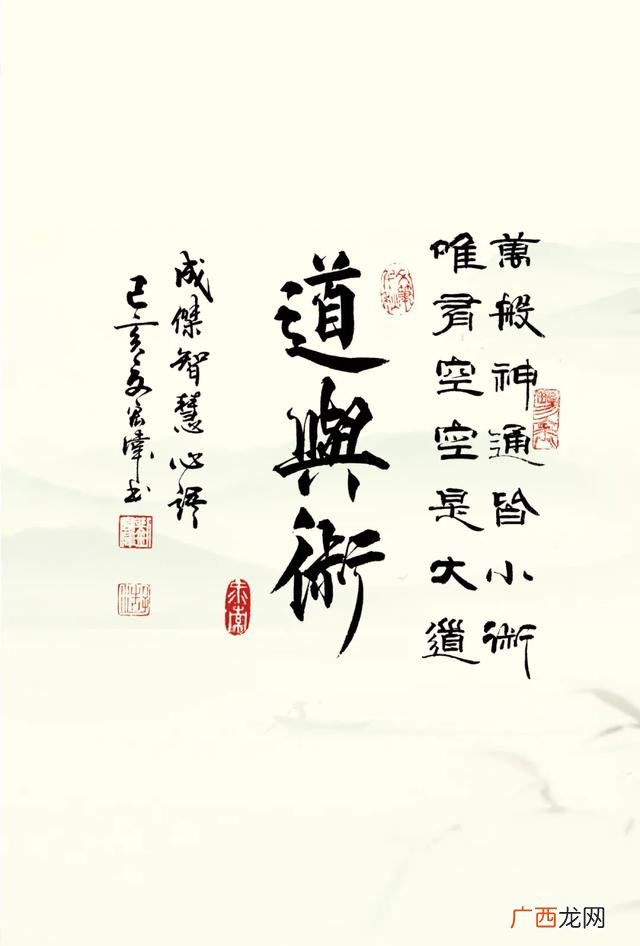 萬般神通皆小術
唯有空空是大道
道與術
成傑智慧心語
己亥書
广西龙网